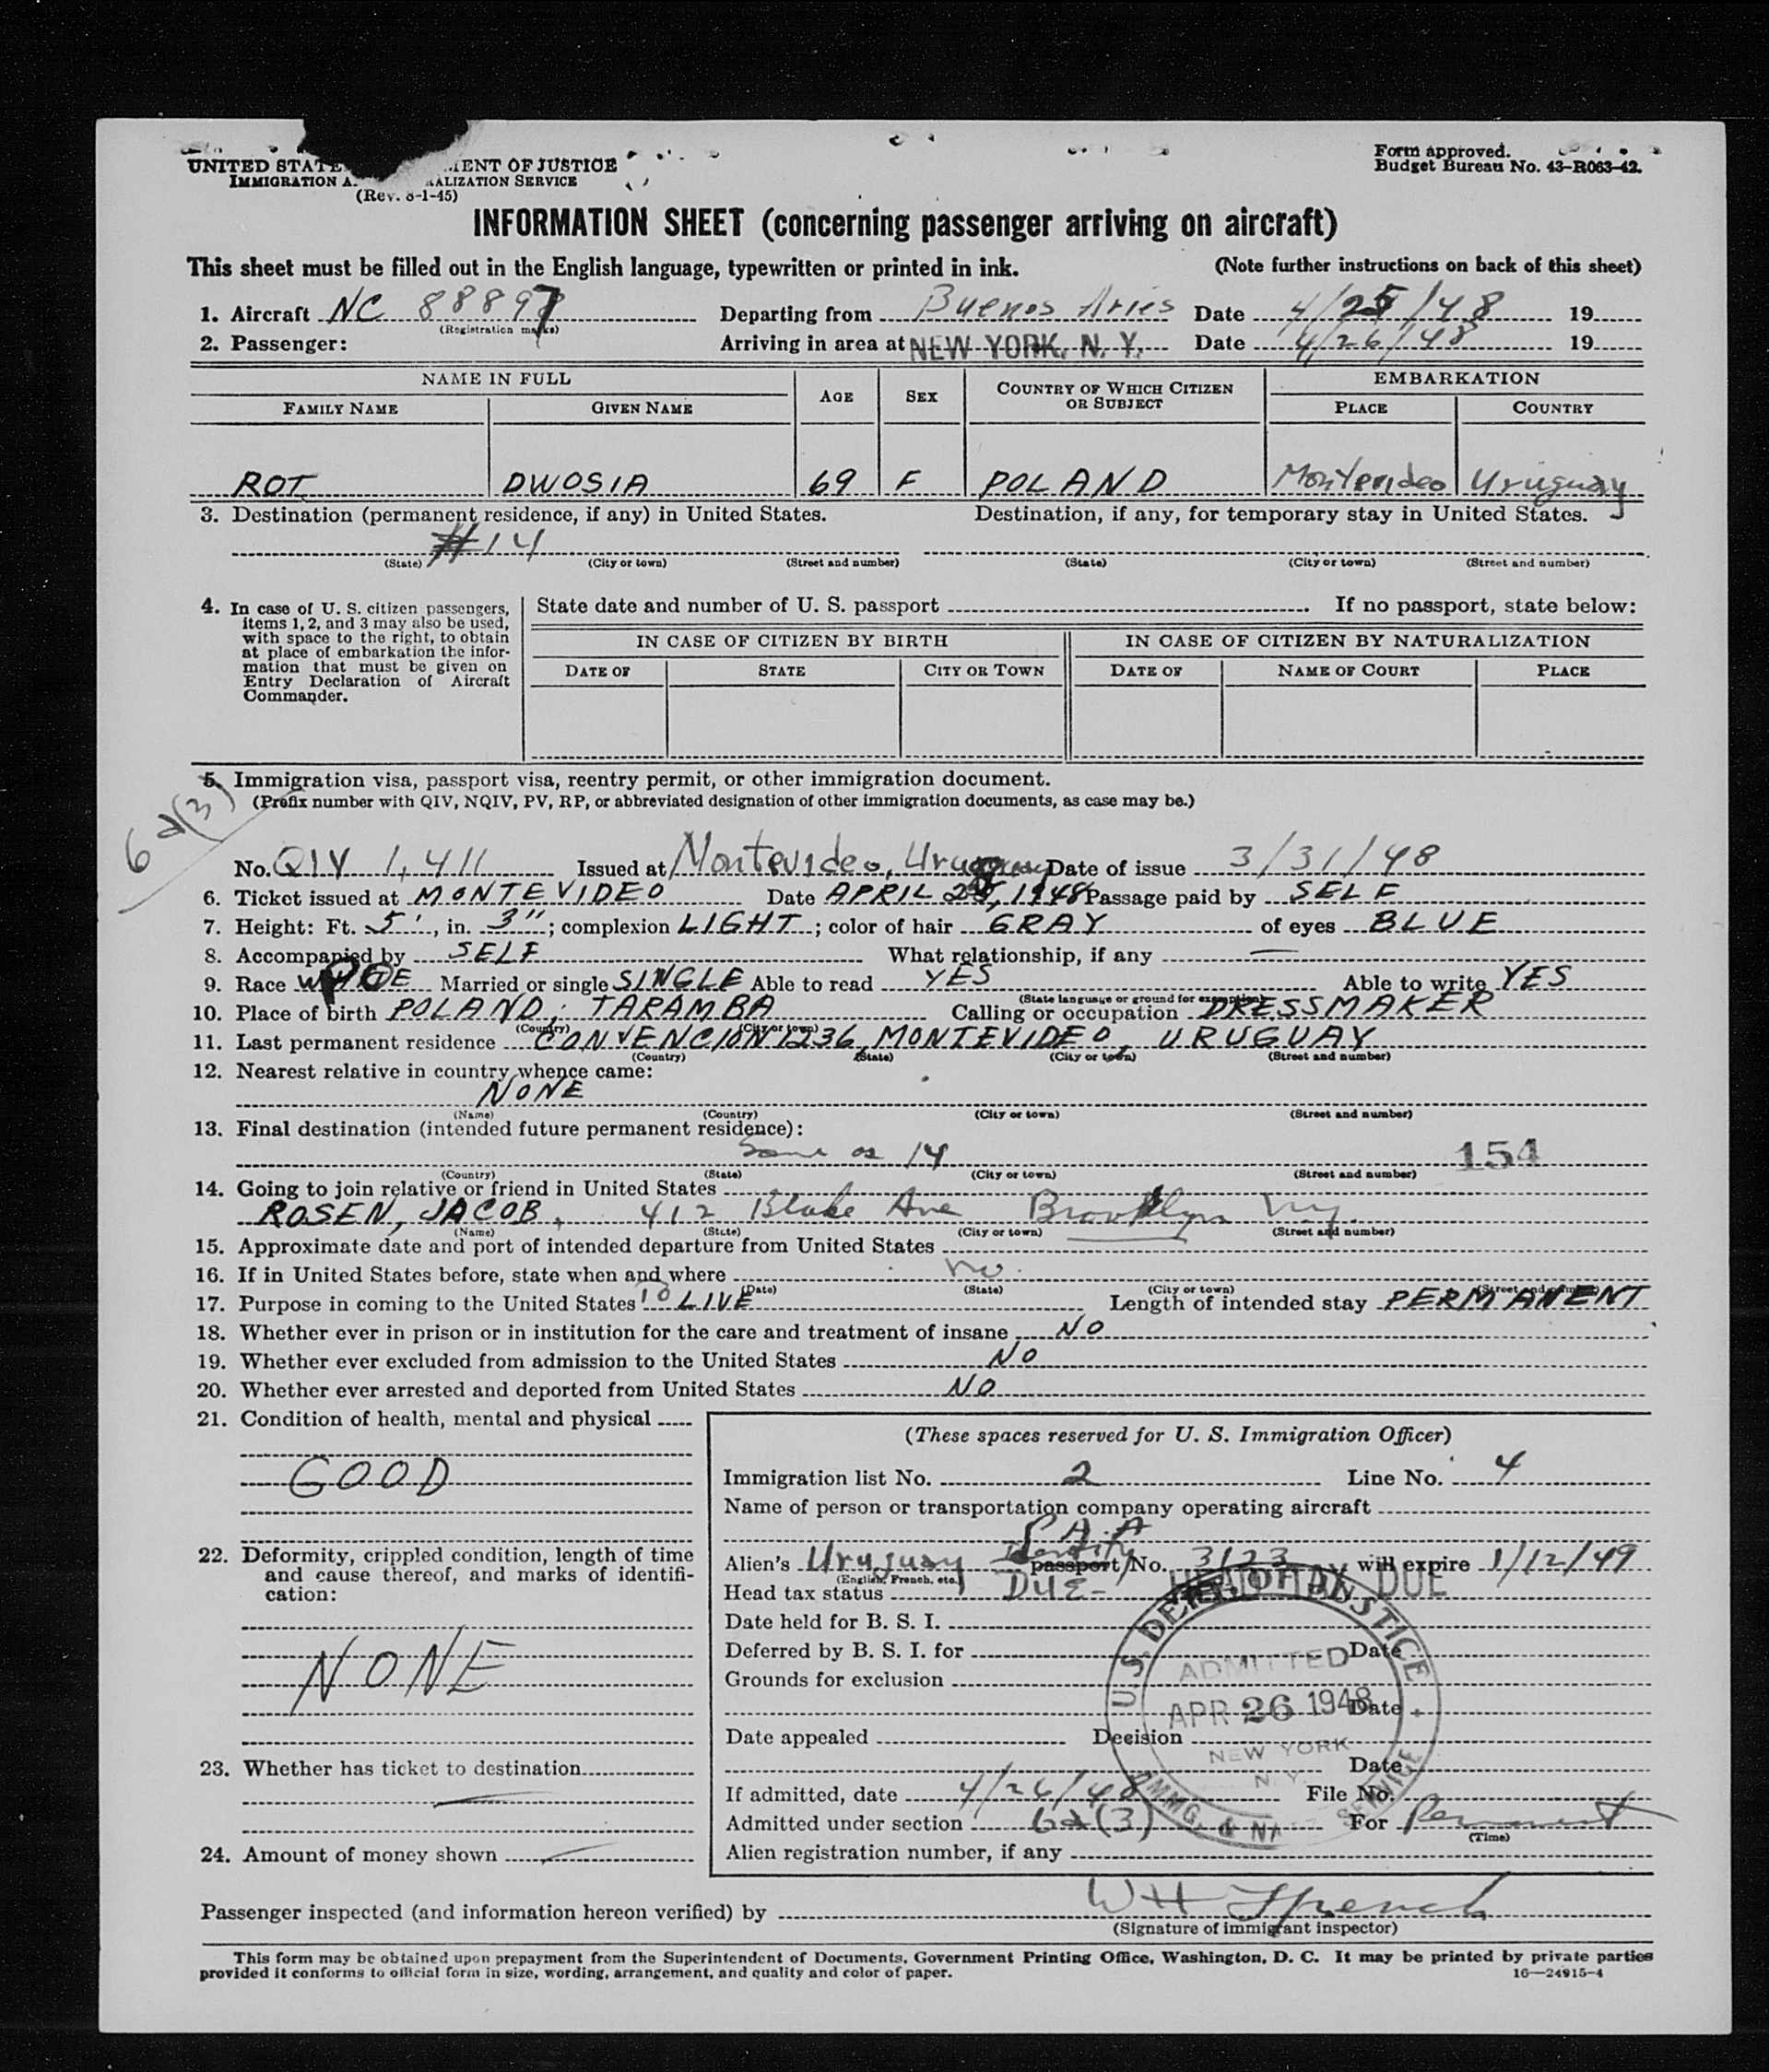 UNITED STATE MENT OF JUSTICE
IMMIGRATION A ALIZATION SERVICE
(Rev. 8-1-45)
Form approved.
Budget Bureau No. 43-R063-42.
INFORMATION SHEET (concerning passenger arriving on aircraft)
This sheet must be filled out in the English language, typewritten or printed in ink. (Note further instructions on back of this sheet)
1. Aircraft NC 88897 Departing from Buenos Aries Date 4/25/48 19
(Registration marks)
2. Passenger: Arriving in area at NEW YORK, N. Y. Date 4/26/48 19
NAME IN FULL AGE SEX COUNTRY OF WHICH CITIZEN OR SUBJECT EMBARKATION
FAMILY NAME GIVEN NAME PLACE COUNTRY
ROT DWOSIA 69 F POLAND Montevideo Uruguay
3. Destination (permanent residence, if any) in United States. Destination, if any, for temporary stay in United States.
#14
(State) (City or town) (Street and number) (State) (City or town) (Street and number)
4. In case of U. S. citizen passengers, items 1, 2, and 3 may also be used, with space to the right, to obtain at place of embarkation the information that must be given on Entry Declaration of Aircraft Commander.
State date and number of U. S. passport If no passport, state below:
IN CASE OF CITIZEN BY BIRTH IN CASE OF CITIZEN BY NATURALIZATION
DATE OF STATE CITY OR TOWN DATE OF NAME OF COURT PLACE
5. Immigration visa, passport visa, reentry permit, or other immigration document.
(Prefix number with QIV, NQIV, PV, RP, or abbreviated designation of other immigration documents, as case may be.)
6a(3)
No. QIV 1,411 Issued at Montevideo, Uruguay Date of issue 3/31/48
6. Ticket issued at MONTEVIDEO Date APRIL 25, 1948 Passage paid by SELF
7. Height: Ft. 5', in. 3"; complexion LIGHT; color of hair GRAY of eyes BLUE
8. Accompanied by SELF What relationship, if any —
9. Race WHITE Married or single SINGLE Able to read YES Able to write YES
(State language or ground for exemption)
10. Place of birth POLAND; TARAMBA Calling or occupation DRESSMAKER
(Country) (City or town)
11. Last permanent residence CONVENCION 1236, MONTEVIDEO, URUGUAY
(Country) (State) (City or town) (Street and number)
12. Nearest relative in country whence came:
NONE
(Name) (Country) (City or town) (Street and number)
13. Final destination (intended future permanent residence):
Same as 14 154
(Country) (State) (City or town) (Street and number)
14. Going to join relative or friend in United States
ROSEN, JACOB, 412 Blake Ave Brooklyn Ny.
(Name) (State) (City or town) (Street and number)
15. Approximate date and port of intended departure from United States
16. If in United States before, state when and where no.
(Date) (State) (City or town) (Street and number)
17. Purpose in coming to the United States TO LIVE Length of intended stay PERMANENT
18. Whether ever in prison or in institution for the care and treatment of insane NO
19. Whether ever excluded from admission to the United States NO
20. Whether ever arrested and deported from United States NO
21. Condition of health, mental and physical
GOOD
22. Deformity, crippled condition, length of time and cause thereof, and marks of identification:
NONE
23. Whether has ticket to destination —
24. Amount of money shown —
(These spaces reserved for U. S. Immigration Officer)
Immigration list No. 2 Line No. 4
Name of person or transportation company operating aircraft
P.A.A
Alien's Uruguay Identity passport No. 3123 will expire 1/12/49
(English, French, etc.)
Head tax status DUE- HEAD TAX DUE
Date held for B. S. I.
Deferred by B. S. I. for Date
Grounds for exclusion
Date
Date appealed Decision
Date
If admitted, date 4/26/48 File No.
Admitted under section 6a(3) For Permanent
(Time)
Alien registration number, if any
U.S. DEPT. OF JUSTICE
ADMITTED
APR 26 1948
NEW YORK
N. Y.
IMMG. & NAT. SERVICE
Passenger inspected (and information hereon verified) by W H French
(Signature of immigrant inspector)
This form may be obtained upon prepayment from the Superintendent of Documents, Government Printing Office, Washington, D. C. It may be printed by private parties
provided it conforms to official form in size, wording, arrangement, and quality and color of paper. 16—24915-4